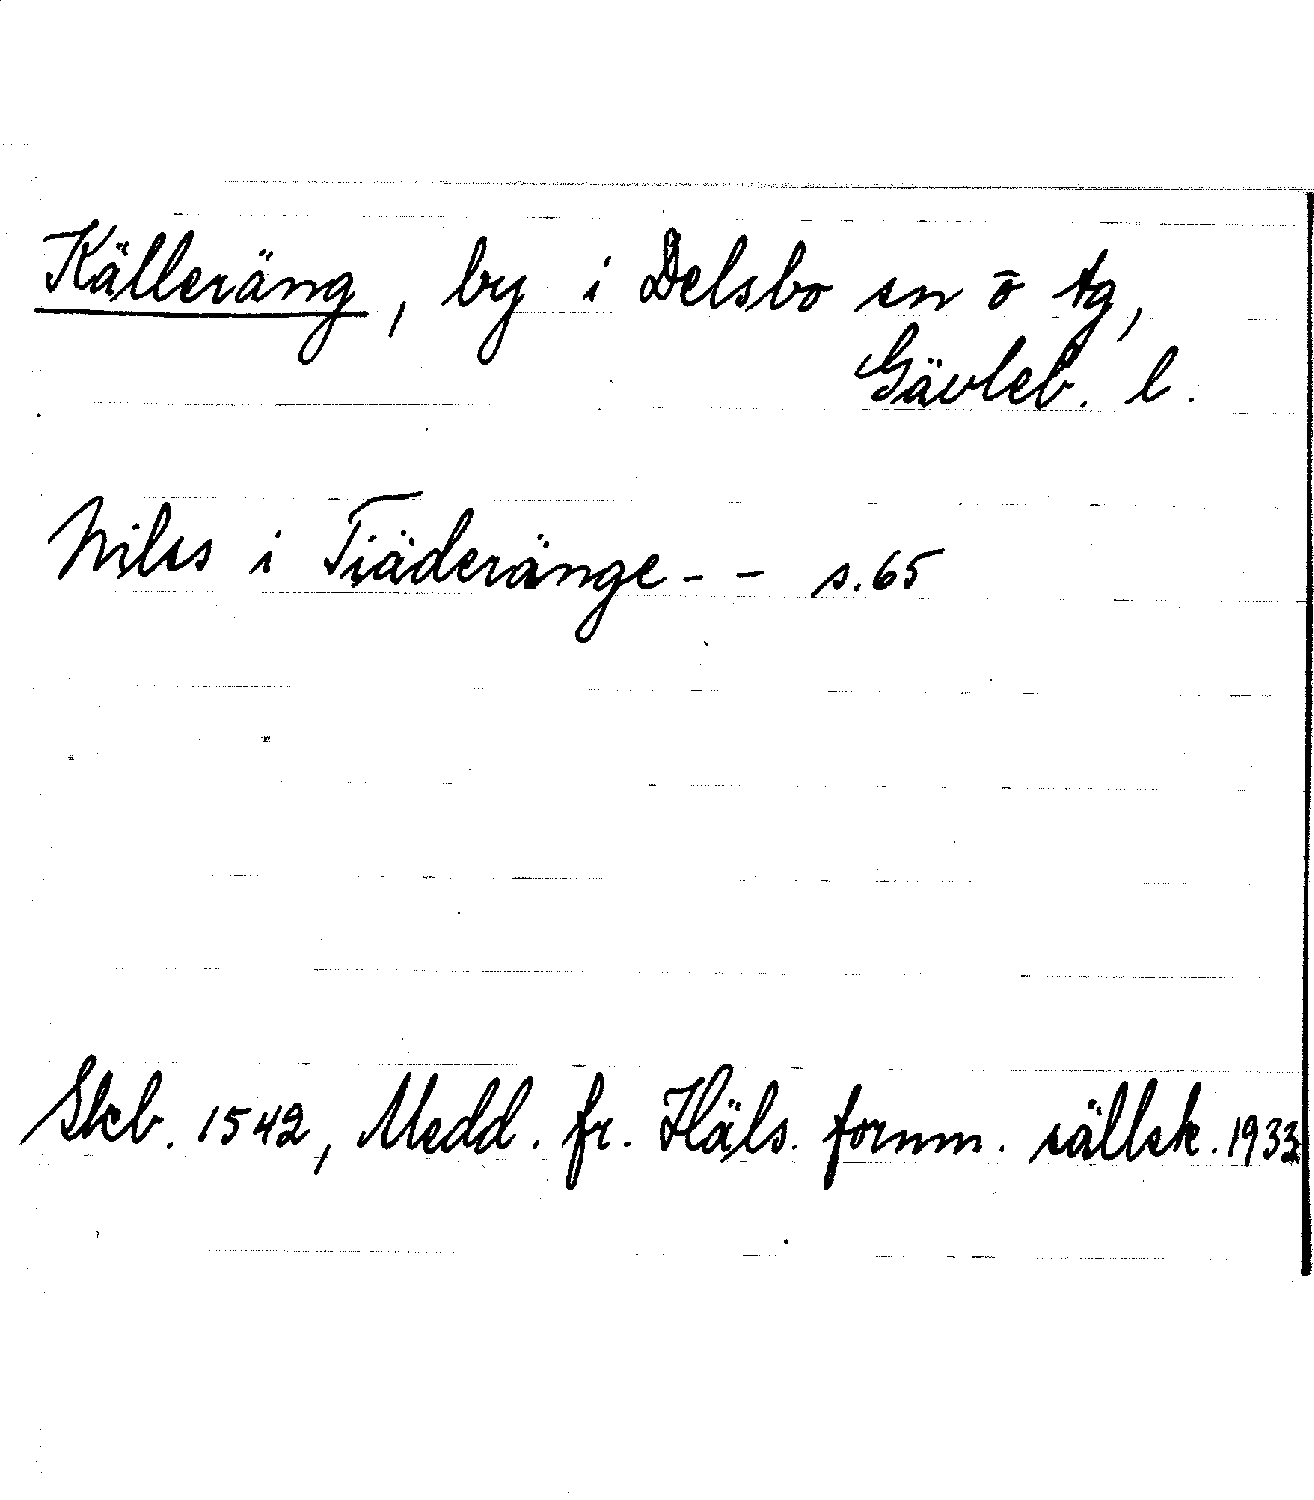 Källeräng, by i Delsbo sn o tg,
Gävleb. l.
Nils i Tiäderänge - - s. 65
Skb. 1542, Medd. fr. Häls. fornm. sällsk. 1933